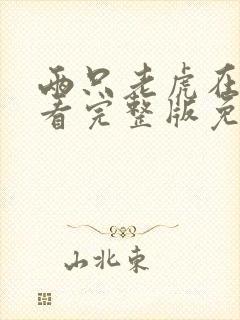 两只老虎在
看完整版免
山北东